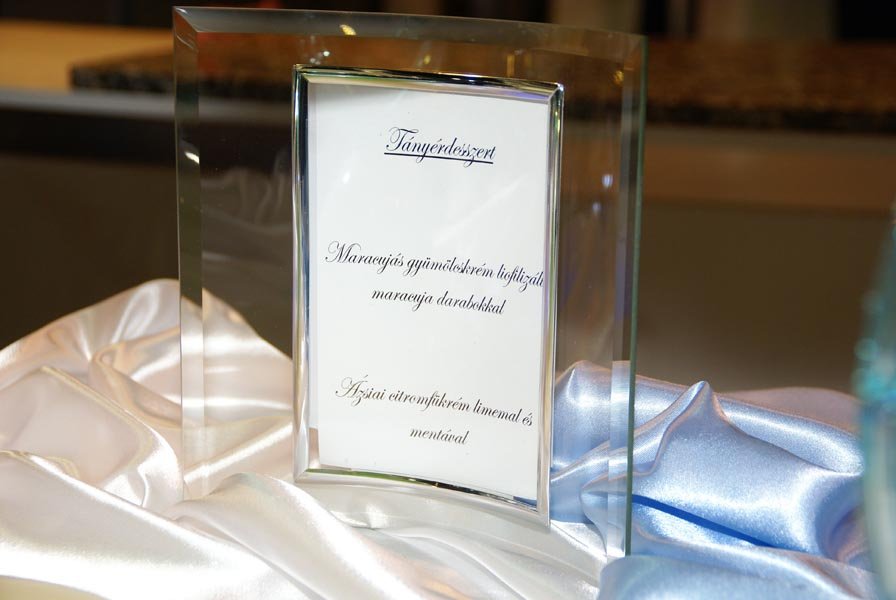 Tányérdesszert
Maracujás gyümöloskrém liofilizált
maracuja darabokkal
Ázsiai citromfükrém limemal és
mentával